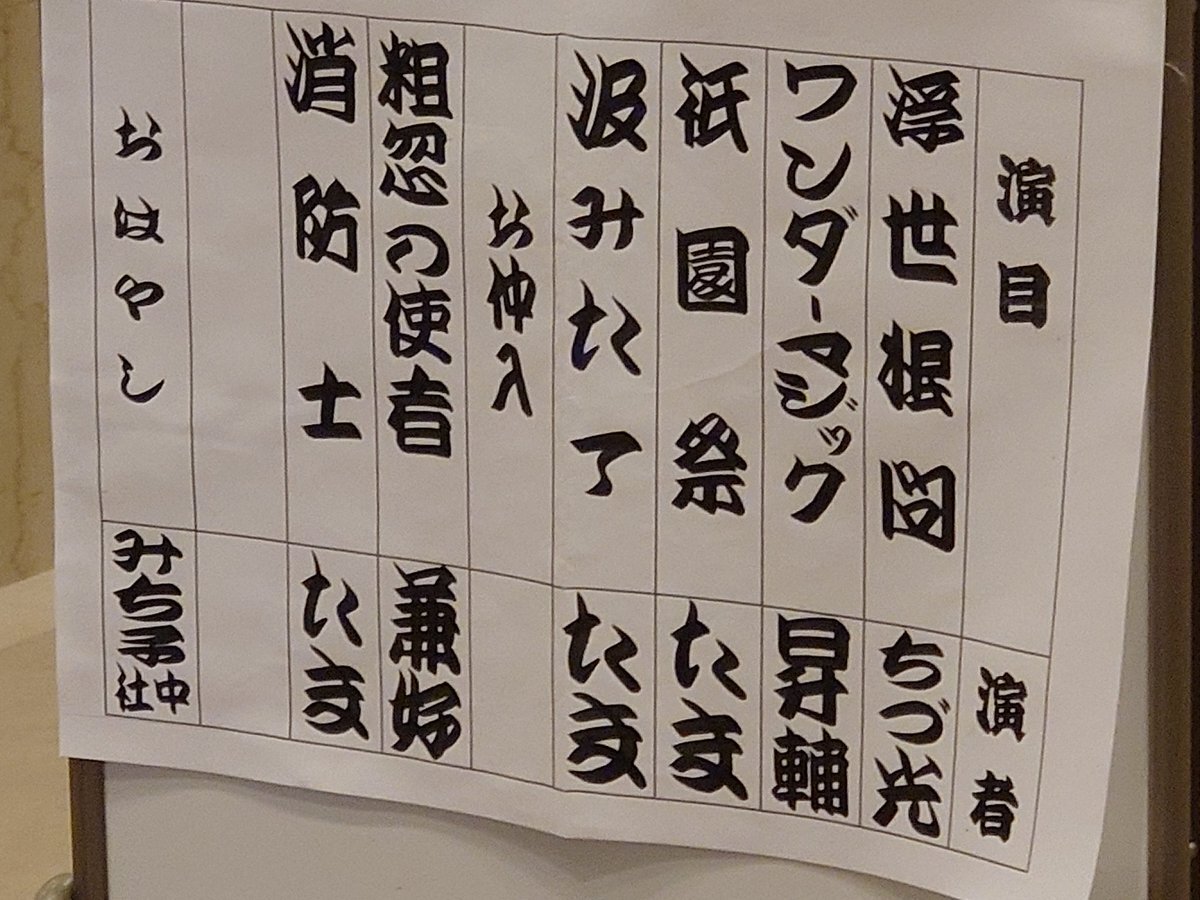 演目 演者
浮世根問 ちづ光
ワンダーマジック 昇輔
祇園祭 たま
汲みたて たま
お仲入
粗忽の使者 兼好
消防士 たま
おはやし みち子社中